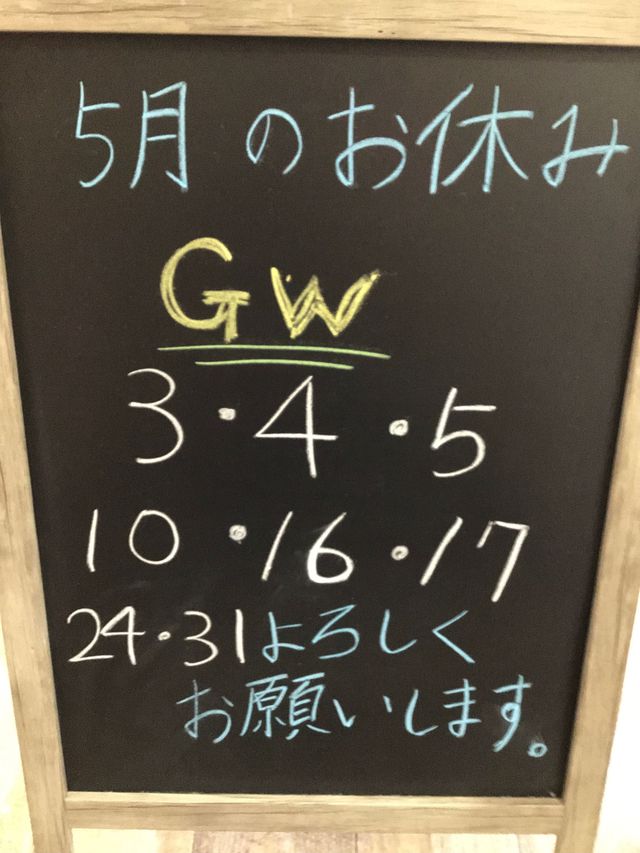 5月のお休み
GW
3・4・5
10・16・17
24・31よろしく
お願いします。